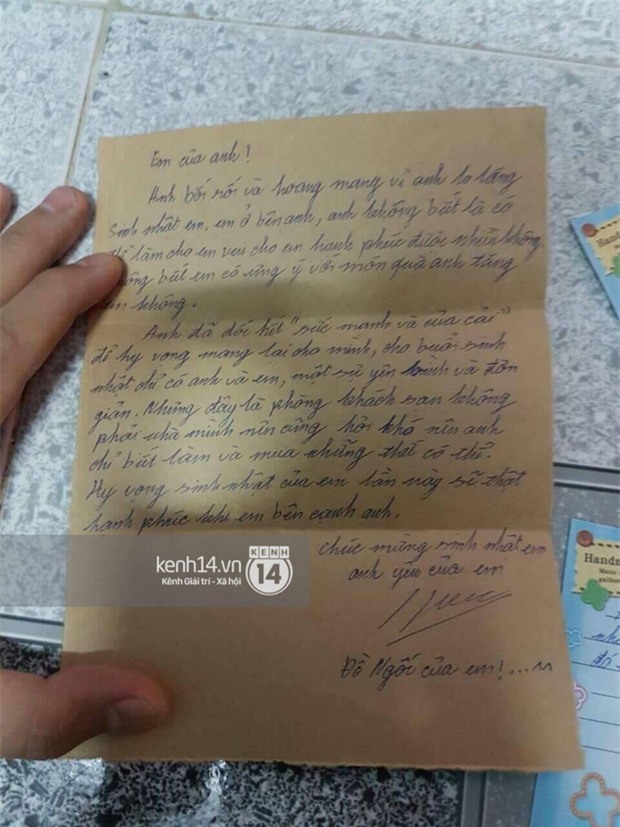 Em của anh!
Anh bối rối và hoang mang vì anh lo lắng
Sinh nhật em, em ở bên anh, anh không biết là có
thể làm cho em vui cho em hạnh phúc được nhiều không
không biết em có ưng ý với món quà anh tặng
em không.
Anh đã dốc hết "sức mạnh và của cải"
để hy vọng mang lại cho mình, cho buổi sinh
nhật chỉ có anh và em, một sự yên bình và đơn
giản. Nhưng đây là phòng khách sạn không
phải nhà mình nên cũng hơi khó nên anh
chỉ biết làm và mua những thứ có thể.
Hy vọng sinh nhật của em lần này sẽ thật
hạnh phúc khi em bên cạnh anh.
chúc mừng sinh nhật em
anh yêu của em
Đồ Ngốc của em!...
kenh14.vn
Kênh Giải trí - Xã hội
KENH
14
Hand
Hands
Many
gather